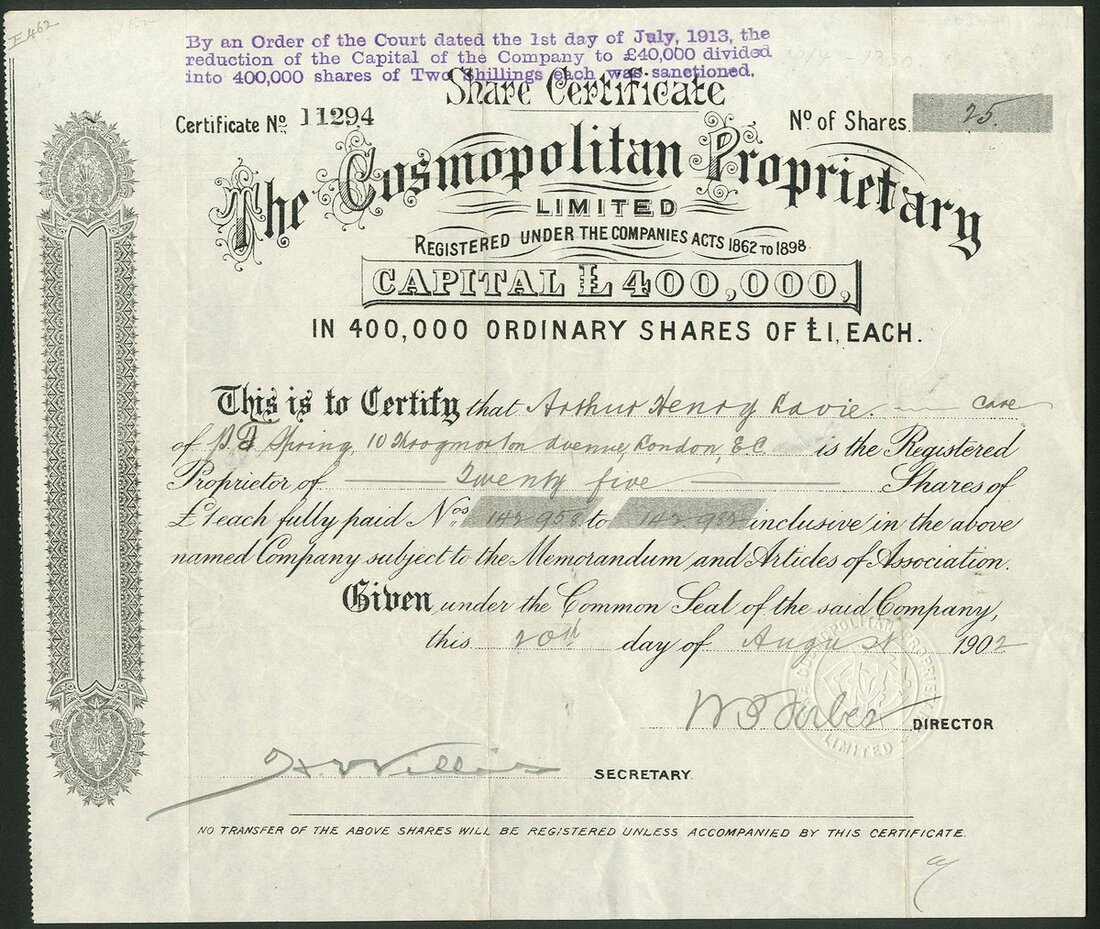 E462
By an Order of the Court dated the 1st day of July, 1913, the
reduction of the Capital of the Company to £40,000 divided
into 400,000 shares of Two Shillings each was sanctioned.
Share Certificate
Certificate No. 11294
No of Shares 25.
The Cosmopolitan Proprietary
LIMITED
REGISTERED UNDER THE COMPANIES ACTS 1862 TO 1898.
CAPITAL £400,000,
IN 400,000 ORDINARY SHARES OF £1, EACH.
This is to Certify that Arthur Henry care
of Spring, 10 Throgmorton Avenue, London, E C is the Registered
Proprietor of Twenty five Shares of
£1 each fully paid Nos. 142 958 to 142 982 inclusive in the above
named Company subject to the Memorandum and Articles of Association.
Given under the Common Seal of the said Company,
this 20th day of August 1902
DIRECTOR
SECRETARY
THE COSMOPOLITAN PROPRIETARY LIMITED
NO TRANSFER OF THE ABOVE SHARES WILL BE REGISTERED UNLESS ACCOMPANIED BY THIS CERTIFICATE.